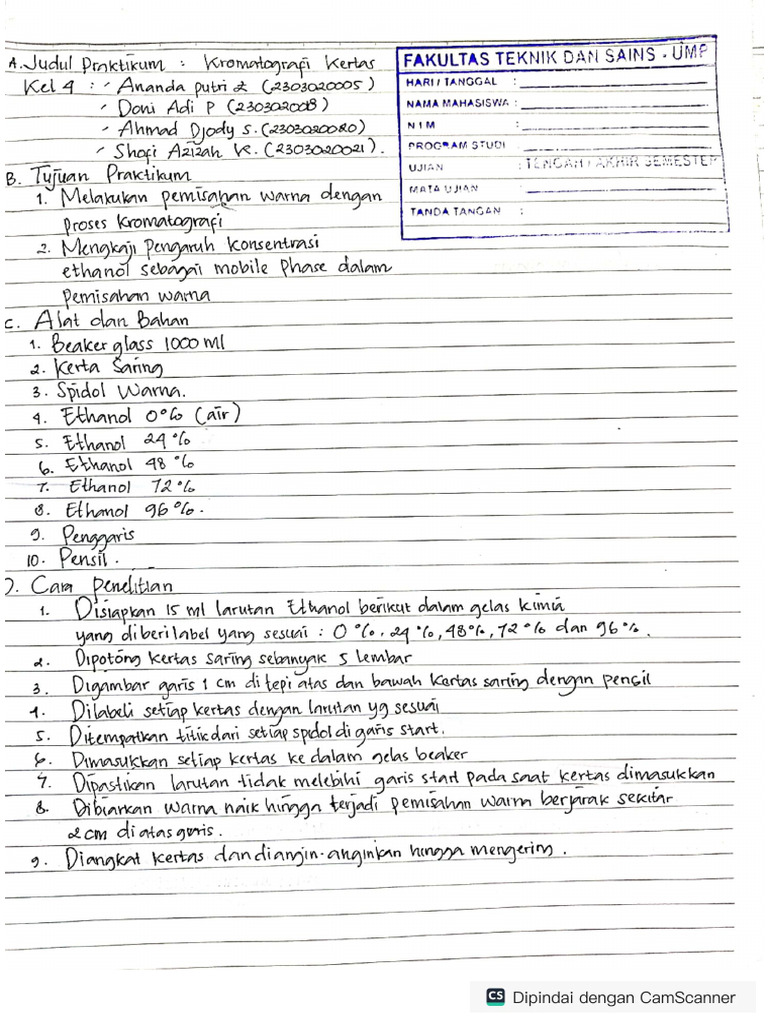 A. Judul Praktikum : Kromatografi Kertas
Kel 4 : - Ananda putri Z (2303020005)
- Doni Adi P (230302008)
- Ahmad Djody S. (2303020020)
- Shofi Azizah K. (2303020021).
FAKULTAS TEKNIK DAN SAINS - UMP
HARI / TANGGAL :
NAMA MAHASISWA :
NIM :
PROGRAM STUDI
UJIAN : TENGAH / AKHIR SEMESTER
MATA UJIAN
TANDA TANGAN :
B. Tujuan Praktikum
1. Melakukan pemisahan warna dengan
proses kromatografi
2. Mengkaji Pengaruh Konsentrasi
ethanol sebagai mobile phase dalam
pemisahan warna
C. Alat dan Bahan
1. Beaker glass 1000 ml
2. Kerta Saring
3. Spidol Warna.
4. Ethanol 0% (air)
5. Ethanol 24%
6. Ethanol 48%
7. Ethanol 72%
8. Ethanol 96%.
9. Penggaris
10. Pensil.
D. Cara penelitian
1. Disiapkan 15 ml larutan Ethanol berikut dalam gelas kimia
yang diberi label yang sesuai : 0%, 24%, 48%, 72% dan 96%.
2. Dipotong kertas saring sebanyak 5 lembar
3. Digambar garis 1 cm di tepi atas dan bawah kertas saring dengan pensil
4. Dilabeli setiap kertas dengan larutan yg sesuai
5. Ditempatkan titik dari setiap spidol di garis start.
6. Dimasukkan setiap kertas ke dalam gelas beaker
7. Dipastikan larutan tidak melebihi garis start pada saat kertas dimasukkan
8. Dibiarkan warna naik hingga terjadi pemisahan warna berjarak sekitar
2 cm di atas garis.
9. Diangkat kertas dan diangin-anginkan hingga mengering.
CS Dipindai dengan CamScanner